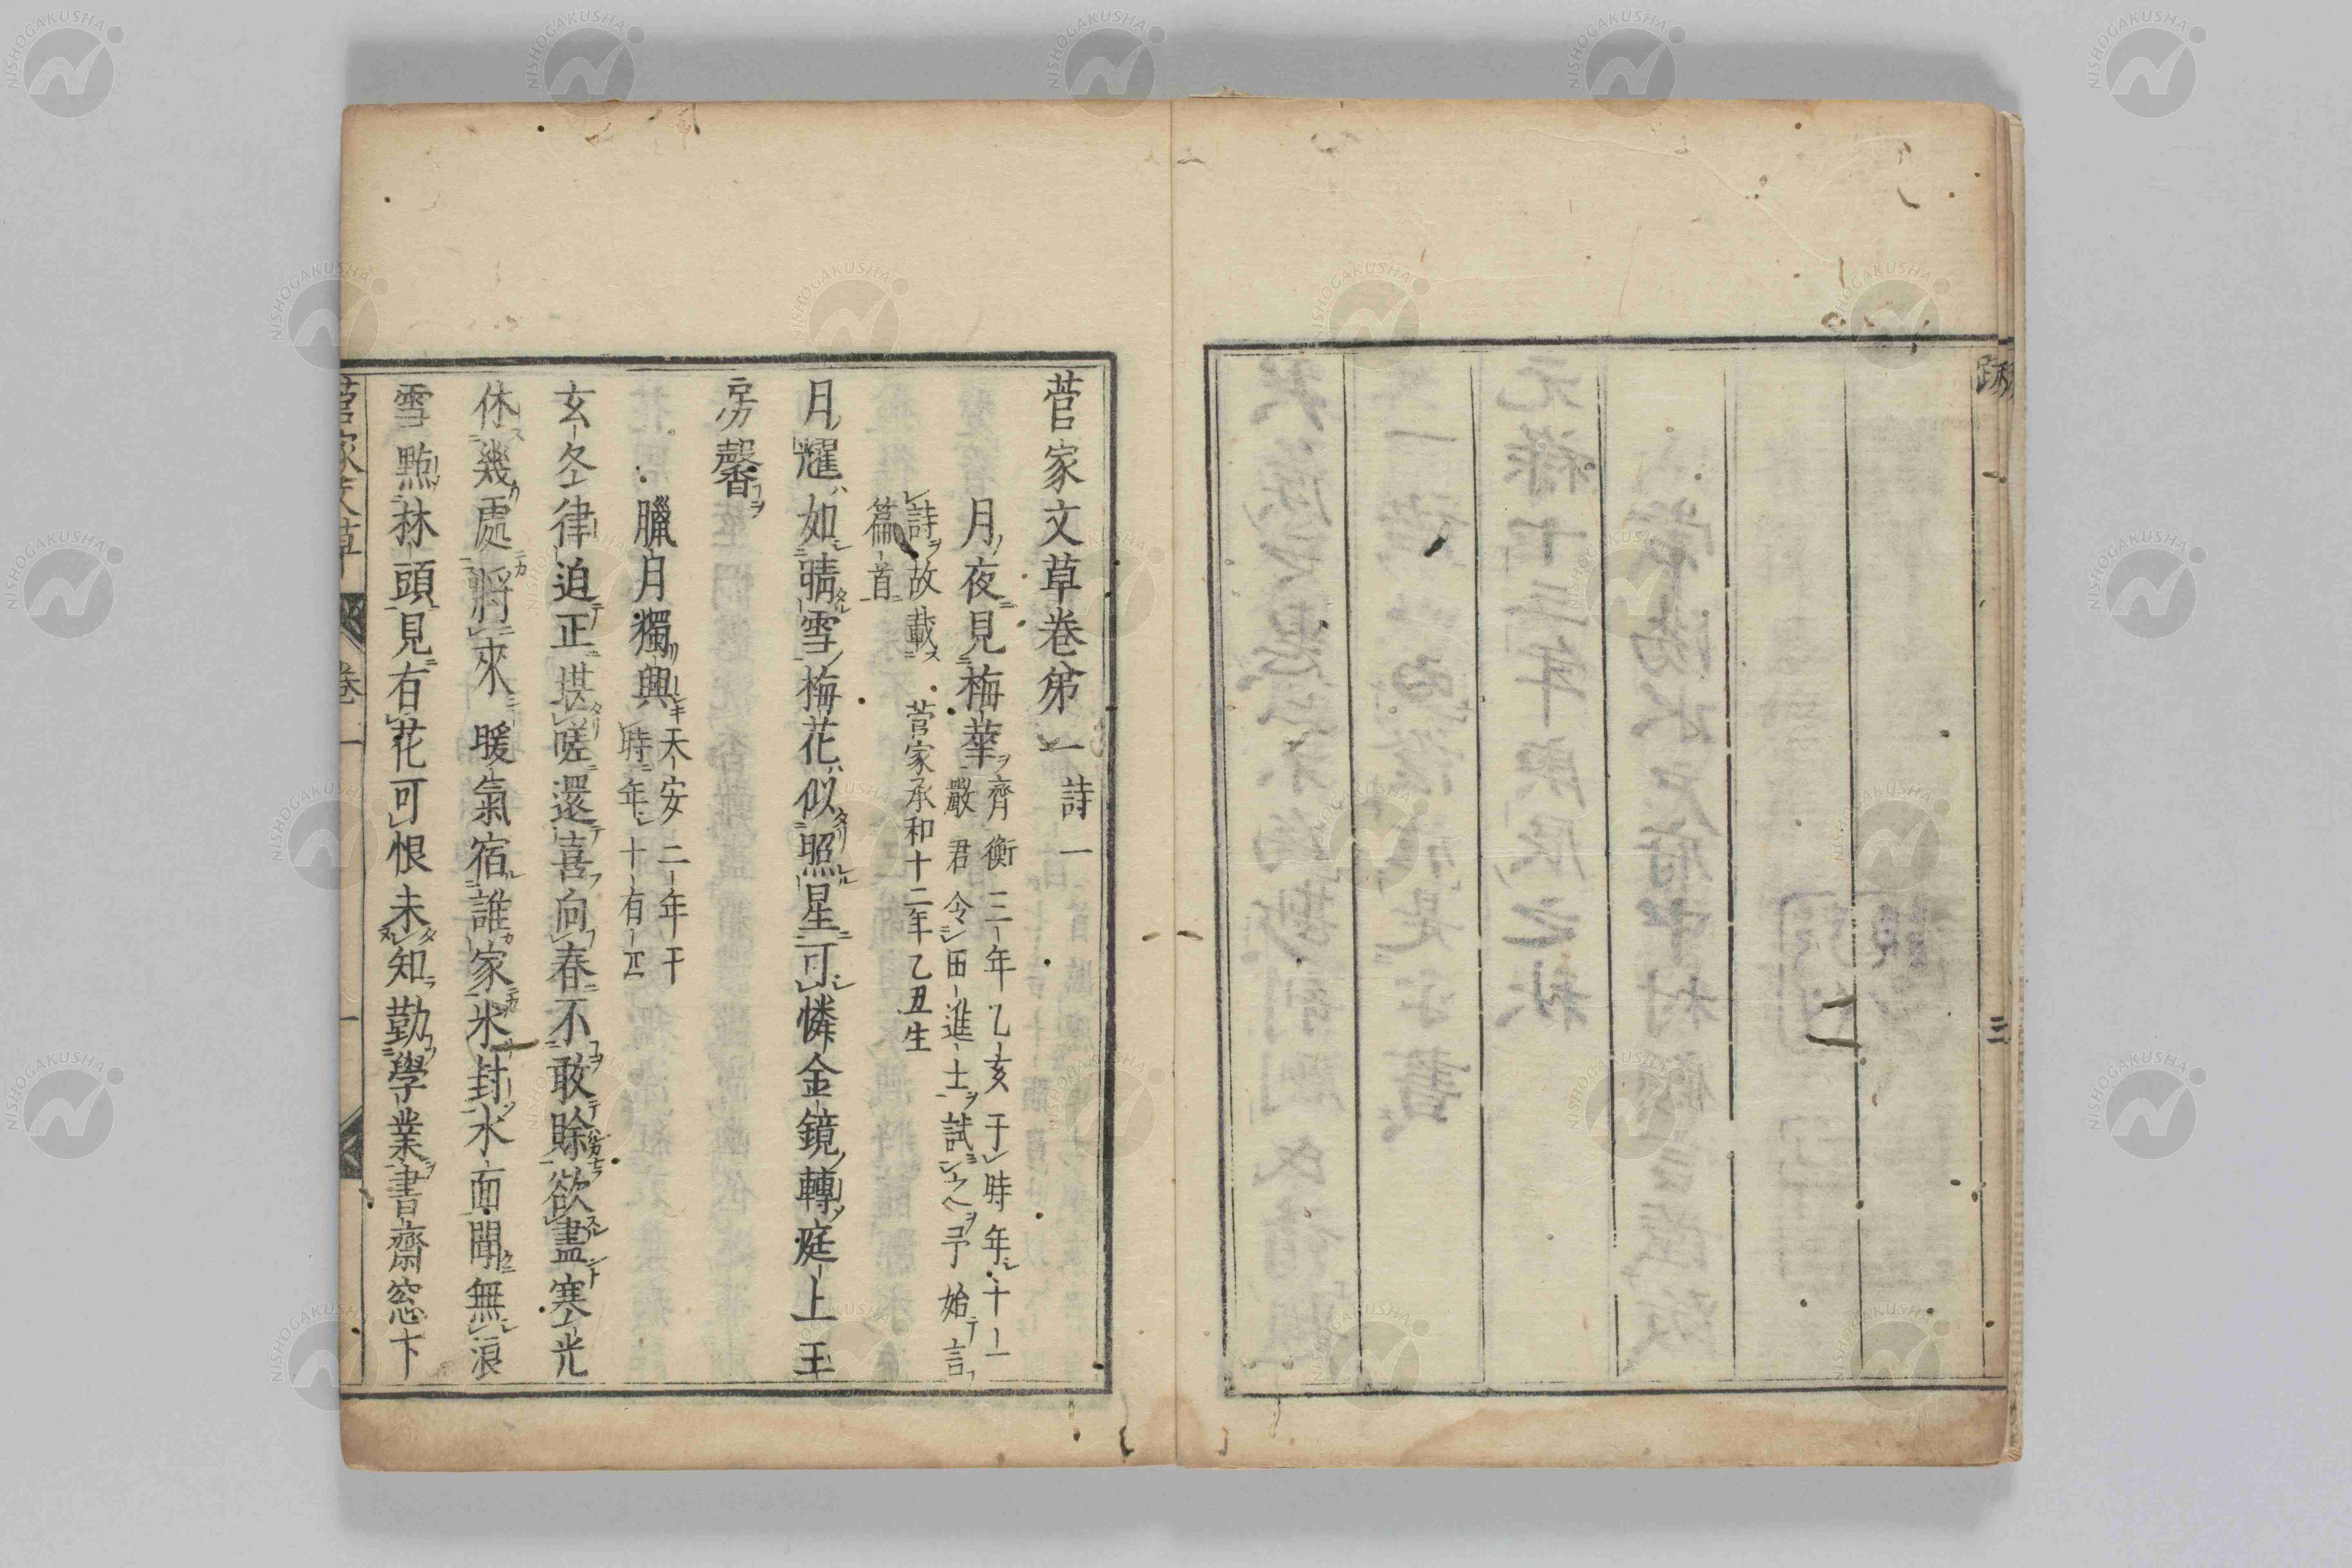 三
菅家文草卷第一 詩一
月夜見梅華
齊衡三年乙亥于時年十一
嚴君令田進士試之予始言
詩故載
篇首
菅家承和十二年乙丑生
月耀如晴雪梅花似照星可憐金鏡轉庭上玉
房馨
臘月獨興
天安二年于
時年十有四
玄冬律迫正堪嗟還喜向春不敢賖欲盡寒光
休幾處將來暖氣宿誰家氷封水面聞無浪
雪點林頭見有花可恨未知勤學業書齋窓下
菅家文草 卷一 一
NISHOGAKUSHA